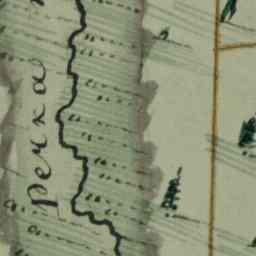 Речка